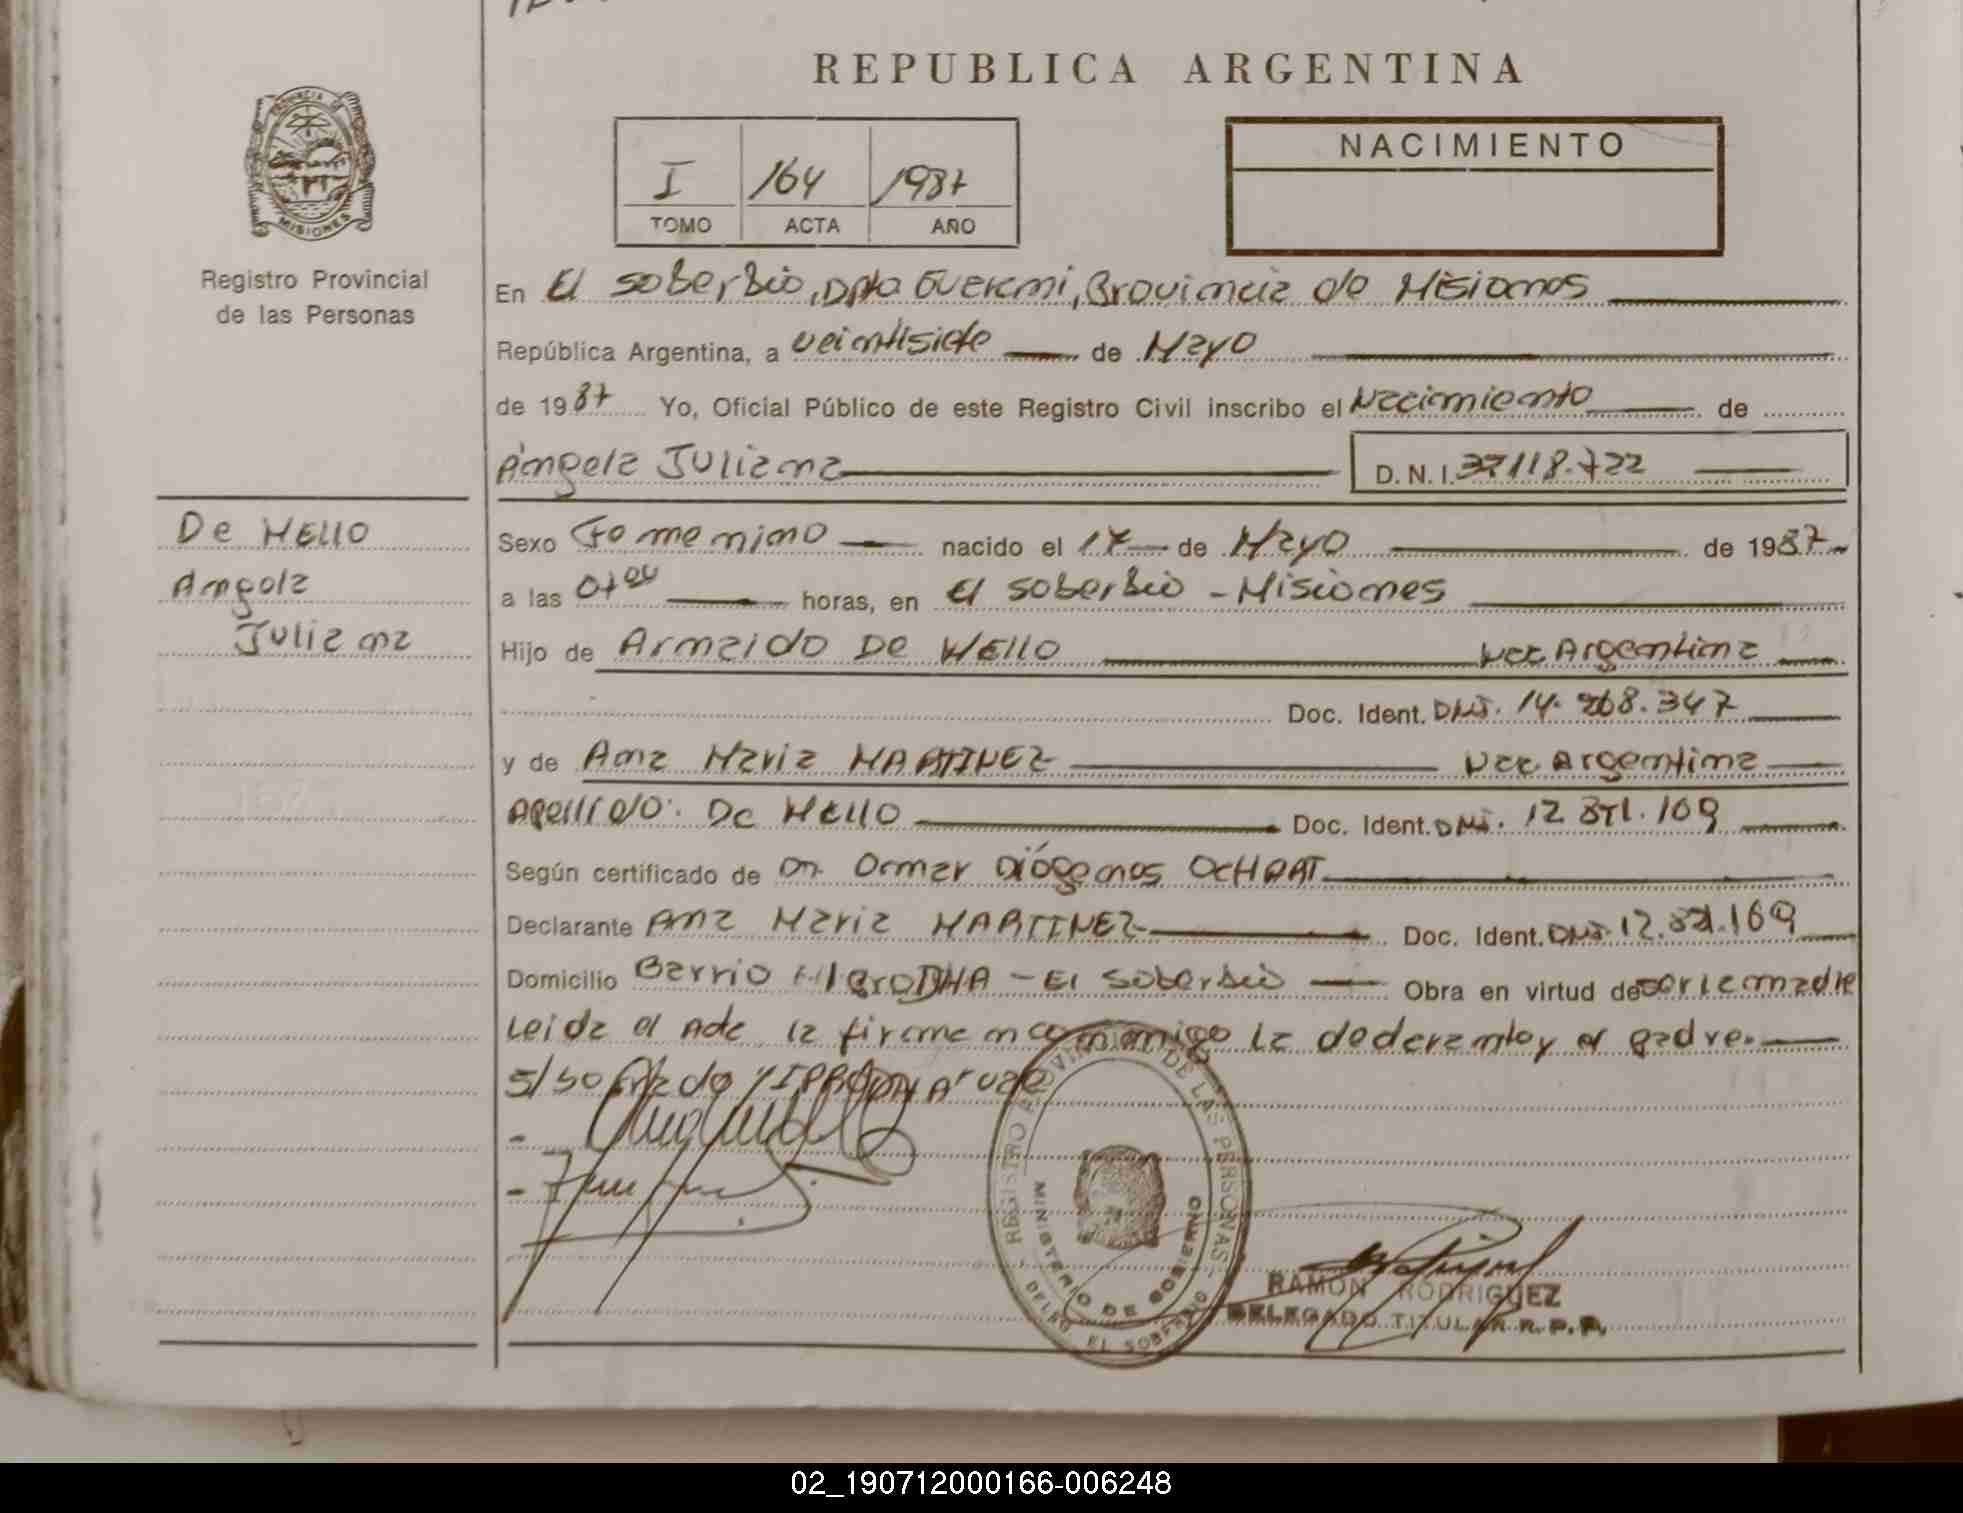 REPUBLICA ARGENTINA
PROVINCIA DE
MISIONES
Registro Provincial
de las Personas
I 164 1987
TOMO ACTA AÑO
NACIMIENTO
En El Soberbio, Dpto Guarani, Provincia de Misiones
República Argentina, a veintisiete de Mayo
de 1987 Yo, Oficial Público de este Registro Civil inscribo el Nacimiento de
Ángela Juliana D. N. I. 37118.722
De Mello
Angela
Juliana
Sexo Femenino nacido el 17 de Mayo de 1987
a las 07 00 horas, en El Soberbio - Misiones
Hijo de Armaldo De Mello Nac Argentina
Doc. Ident. DNI. 14. 268.347
y de Ana Maria MARTINEZ Nac Argentina
Apellido: De Mello Doc. Ident. DNI. 12. 109
Según certificado de Dr. Ormar Diógenes
Declarante Ana Maria MARTINEZ Doc. Ident. DNI
Domicilio Barrio - El Soberbio Obra en virtud de ser la madre
Leida el Acta, la firman conmigo la declarante y el padre.
S/So
REGISTRO PROVINCIAL DE LAS PERSONAS
MINISTERIO DE GOBIERNO
DELEG. EL SOBERBIO
RAMON RODRIGUEZ
DELEGADO TITULAR R. P. P.
02_190712000166-006248